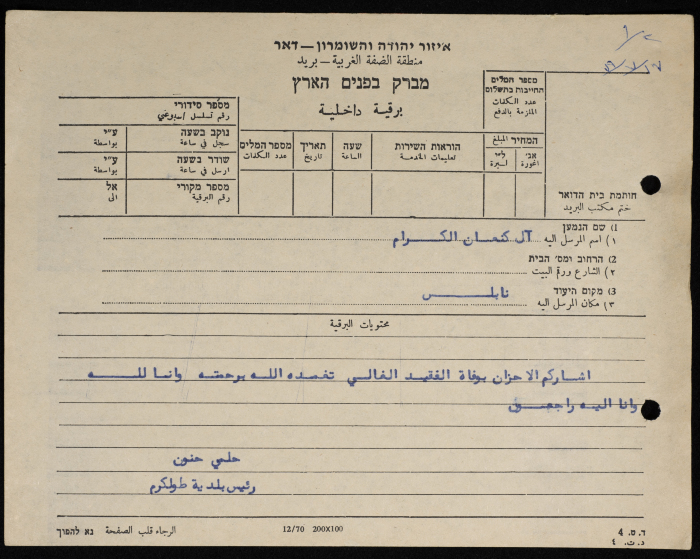 איזור יהודה והשומרון – דאר
منطقة الضفة الغربية – بريد
מברק בפנים הארץ
برقية داخلية
מספר המלים החייבות בתשלום
عدد الكلمات الملزمة بالدفع
המחיר المبلغ
אג' ל"י
اغورة ليرة
חותמת בית הדואר
ختم مكتب البريد
מספר סידורי
رقم تسلسل اسبوعي
נוקב בשעה ע"י
سجل في ساعة بواسطة
שודר בשעה ע"י
ارسل في ساعة بواسطة
מספר מקורי אל
رقم البرقية الى
מספר המלים
عدد الكلمات
תאריך
تاريخ
שעה
الساعة
הוראות השירות
تعليمات الخدمة
1) שם הנמען
١) اسم المرسل اليه آل كنعان الكرام
2) הרחוב ומס' הבית
٢) الشارع ورقم البيت
3) מקום היעוד
٣) مكان المرسل اليه نابلس
محتويات البرقية
اشاركم الاحزان بوفاة الفقيد الغالي تغمده الله برحمته وانا لله
وانا اليه راجعون
حلمي حنون
رئيس بلدية طولكرم
נא להפוך الرجاء قلب الصفحة
12/70 200X100
ד. ט. 4
د. ت. ٤